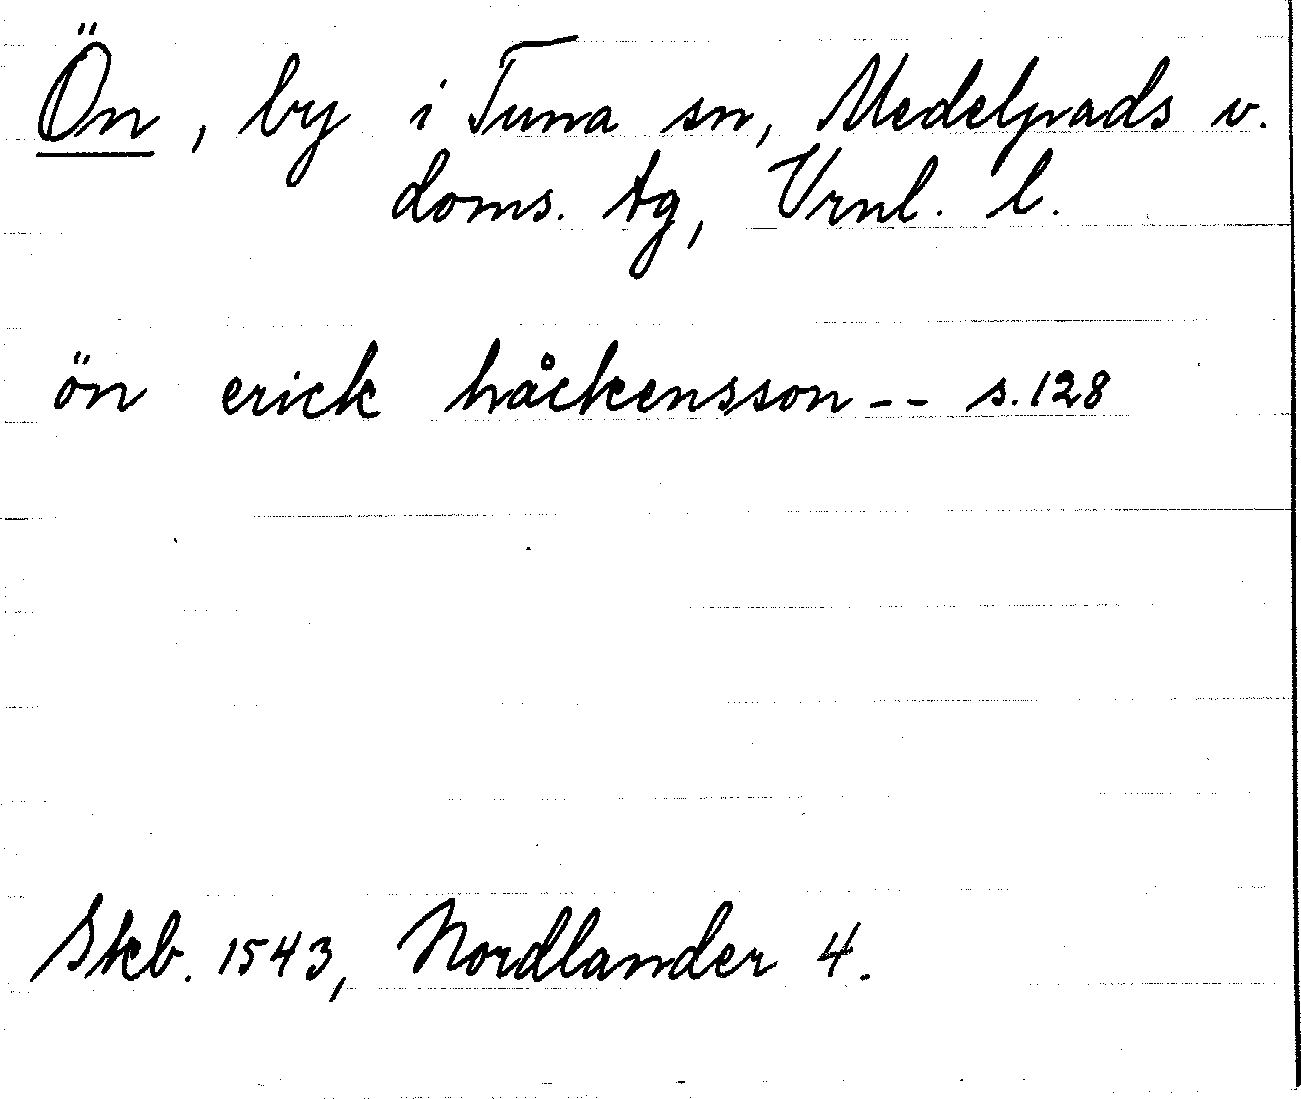 Ön, by i Tuna sn, Medelpads v.
doms. tg, Vrnl. l.
ön erick håckensson -- s. 128
Skb. 1543, Nordlander 4.